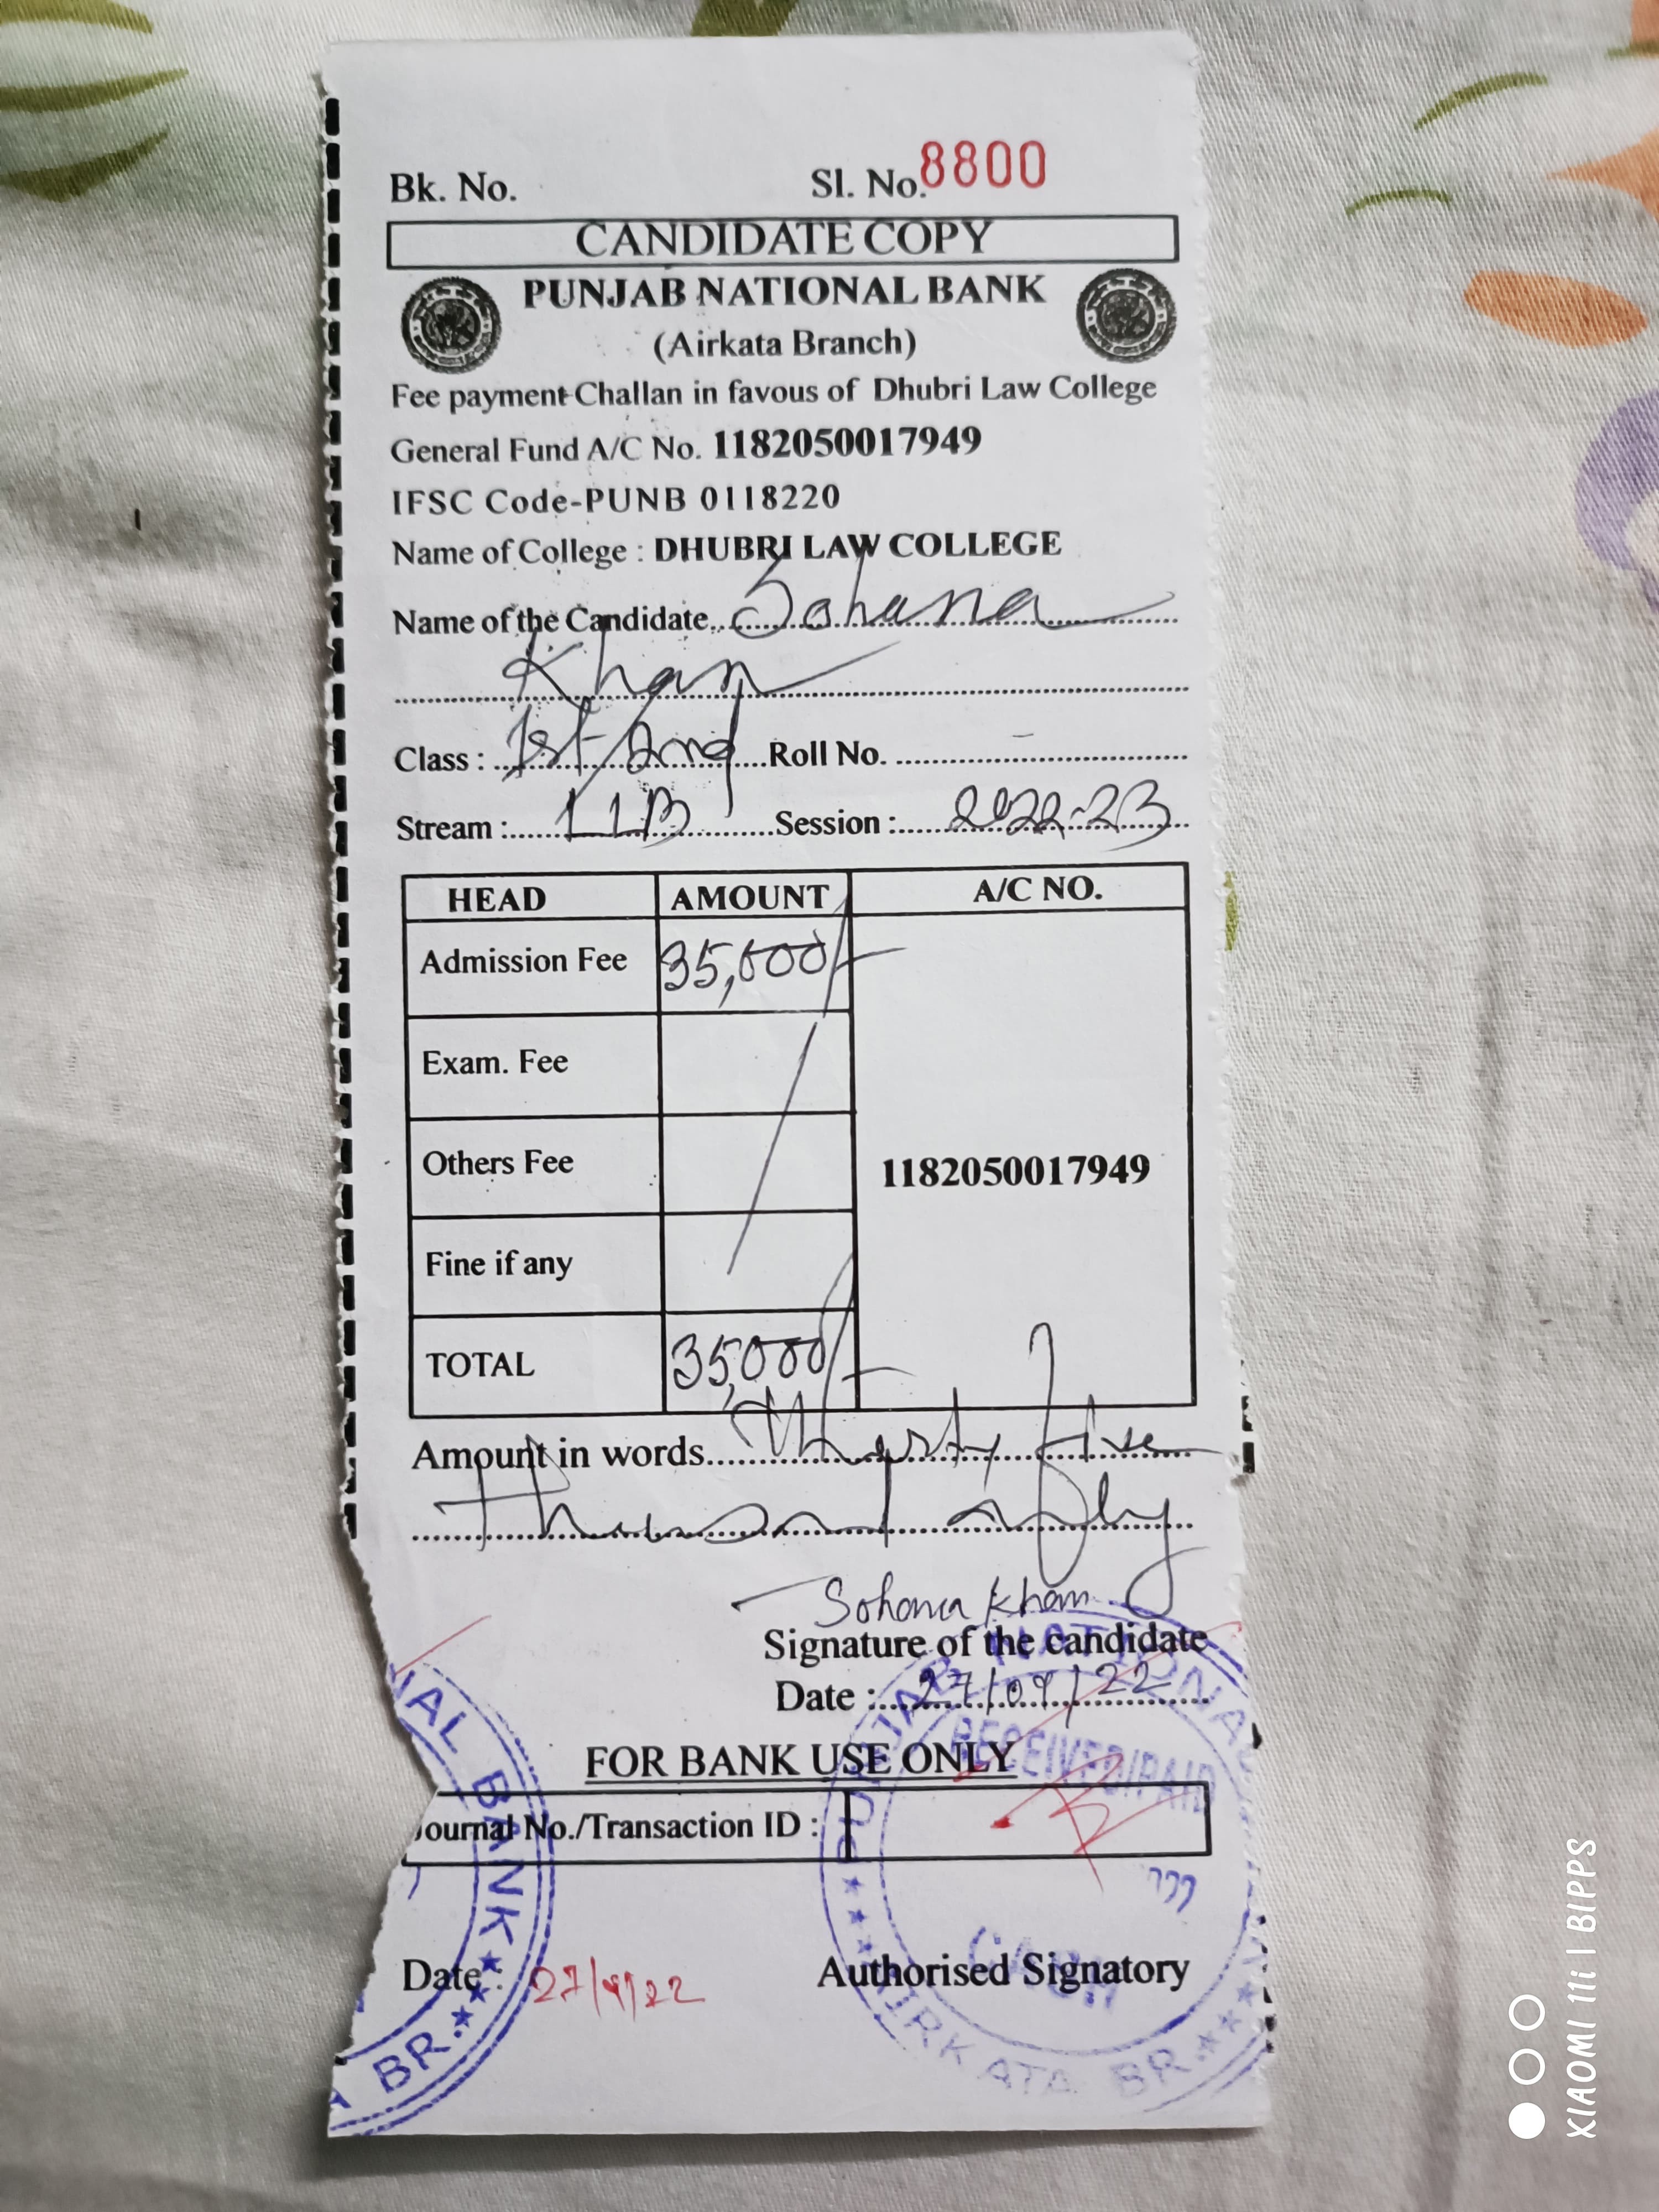 Bk. No. Sl. No. 8800
CANDIDATE COPY
PUNJAB NATIONAL BANK
(Airkata Branch)
Fee payment Challan in favous of Dhubri Law College
General Fund A/C No. 1182050017949
IFSC Code-PUNB 0118220
Name of College : DHUBRI LAW COLLEGE
Name of the Candidate Sohana
Khan
Class : 1st/2nd Roll No. –
Stream : LLB Session : 2022-23
HEAD AMOUNT A/C NO.
Admission Fee 35,000/-
Exam. Fee
Others Fee 1182050017949
Fine if any
TOTAL 35,000/-
Amount in words Thirty five
Thousand only
Sohana Khan
Signature of the candidate
Date : 27/09/22
FOR BANK USE ONLY
Journal No./Transaction ID :
Date : 27/9/22 Authorised Signatory
PUNJAB NATIONAL
RECEIVED/PAID
CASH
AIRKATA BR.
NAL BANK
A BR.
XIAOMI 11i | BIPPS